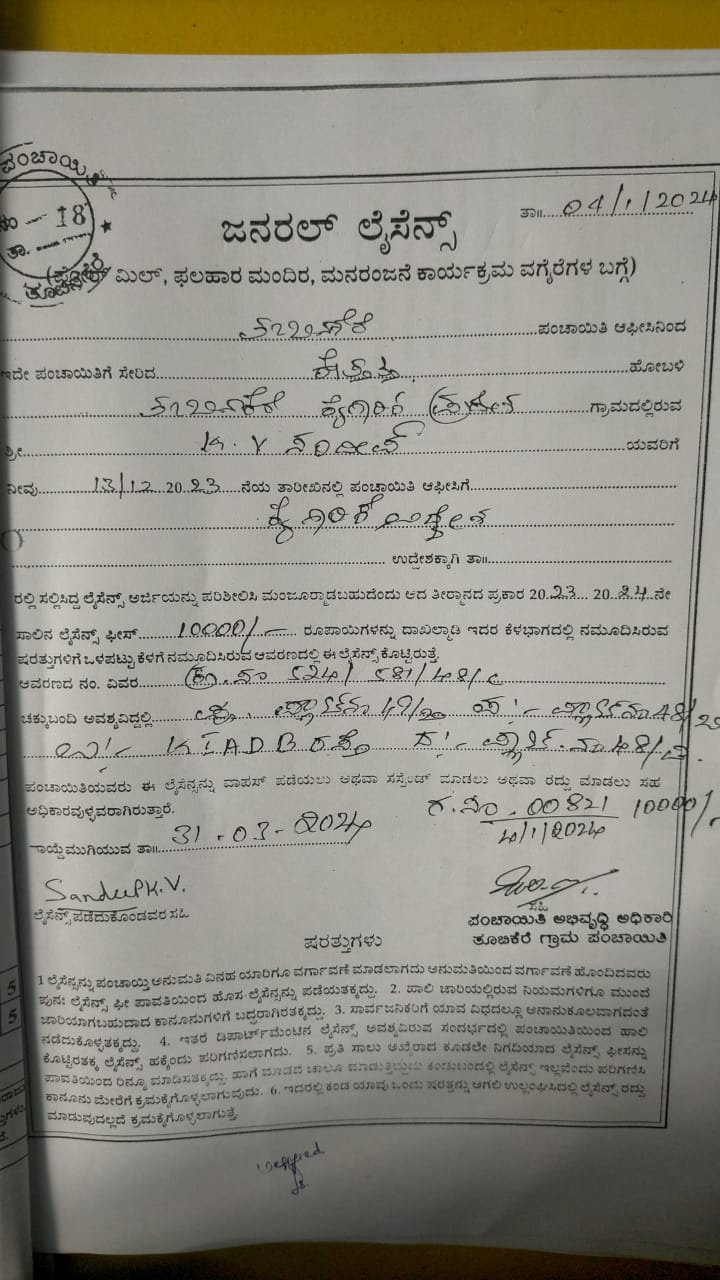 ಪಂಚಾಯಿತಿ
ನಂ - 18
ತಾ.
ತೂಬಿನಕೆರೆ
ತಾ॥ 04/1/2024
ಜನರಲ್ ಲೈಸೆನ್ಸ್
(ಫ್ಲೋರ್ ಮಿಲ್, ಫಲಹಾರ ಮಂದಿರ, ಮನರಂಜನೆ ಕಾರ್ಯಕ್ರಮ ವಗೈರೆಗಳ ಬಗ್ಗೆ)
ತೂಬಿನಕೆರೆ ಪಂಚಾಯಿತಿ ಆಫೀಸಿನಿಂದ
ಇದೇ ಪಂಚಾಯಿತಿಗೆ ಸೇರಿದ ಹೋಬಳಿ
ತೂಬಿನಕೆರೆ ಕೈಗಾರಿಕ ಪ್ರದೇಶ ಗ್ರಾಮದಲ್ಲಿರುವ
ಶ್ರೀ K.V ಸಂದೀಪ್ ಯವರಿಗೆ
ನೀವು 13/12 2023 ನೆಯ ತಾರೀಖಿನಲ್ಲಿ ಪಂಚಾಯಿತಿ ಆಫೀಸಿಗೆ
ಕೈಗಾರಿಕೆ ಉದ್ದೇಶ
ಉದ್ದೇಶಕ್ಕಾಗಿ ತಾ॥
ರಲ್ಲಿ ಸಲ್ಲಿಸಿದ್ದ ಲೈಸೆನ್ಸ್ ಅರ್ಜಿಯನ್ನು ಪರಿಶೀಲಿಸಿ ಮಂಜೂರ್ಮಾಡಬಹುದೆಂದು ಆದ ತೀರ್ಮಾನದ ಪ್ರಕಾರ 2023 2024 ನೇ
ಸಾಲಿನ ಲೈಸೆನ್ಸ್ ಫೀಸ್ 10000/- ರೂಪಾಯಿಗಳನ್ನು ದಾಖಲ್ಮಾಡಿ ಇದರ ಕೆಳಭಾಗದಲ್ಲಿ ನಮೂದಿಸಿರುವ
ಷರತ್ತುಗಳಿಗೆ ಒಳಪಟ್ಟು ಕೆಳಗೆ ನಮೂದಿಸಿರುವ ಆವರಣದಲ್ಲಿ ಈ ಲೈಸೆನ್ಸ್ ಕೊಟ್ಟಿರುತ್ತೆ.
ಆವರಣದ ನಂ. ವಿವರ 524/ 581/48/c
ಚಕ್ಕುಬಂದಿ ಅವಶ್ಯವಿದ್ದಲ್ಲಿ
ಉ:- KIADB ರಸ್ತೆ
ಪಂಚಾಯಿತಿಯವರು ಈ ಲೈಸೆನ್ಸನ್ನು ವಾಪಸ್ ಪಡೆಯಲು ಅಥವಾ ಸಸ್ಪೆಂಡ್ ಮಾಡಲು ಅಥವಾ ರದ್ದು ಮಾಡಲು ಸಹ
ಅಧಿಕಾರವುಳ್ಳವರಾಗಿರುತ್ತಾರೆ.
ರ.ನಂ. 00821 10000/-
4/1/2024
ಕಾಯ್ದೆಮುಗಿಯುವ ತಾ॥ 31-03-2024
Sandeep K.V.
ಲೈಸೆನ್ಸ್ ಪಡೆದುಕೊಂಡವರ ಸಹಿ
ಸಹಿ
ಪಂಚಾಯಿತಿ ಅಭಿವೃದ್ಧಿ ಅಧಿಕಾರಿ
ತೂಬಿಕೆರೆ ಗ್ರಾಮ ಪಂಚಾಯಿತಿ
ಷರತ್ತುಗಳು
1 ಲೈಸೆನ್ಸನ್ನು ಪಂಚಾಯ್ತಿ ಅನುಮತಿ ವಿನಹ ಯಾರಿಗೂ ವರ್ಗಾವಣೆ ಮಾಡಲಾಗದು ಅನುಮತಿಯಿಂದ ವರ್ಗಾವಣೆ ಹೊಂದಿದವರು
ಪುನಃ ಲೈಸೆನ್ಸ್ ಫೀ ಪಾವತಿಯಿಂದ ಹೊಸ ಲೈಸೆನ್ಸನ್ನು ಪಡೆಯತಕ್ಕದ್ದು. 2. ಹಾಲಿ ಜಾರಿಯಲ್ಲಿರುವ ನಿಯಮಗಳಿಗೂ ಮುಂದೆ
ಜಾರಿಯಾಗಬಹುದಾದ ಕಾನೂನುಗಳಿಗೆ ಬದ್ಧರಾಗಿರತಕ್ಕದ್ದು. 3. ಸಾರ್ವಜನಿಕರಿಗೆ ಯಾವ ವಿಧದಲ್ಲೂ ಅನಾನುಕೂಲವಾಗದಂತೆ
ನಡೆದುಕೊಳ್ಳತಕ್ಕದ್ದು. 4. ಇತರೆ ಡಿಪಾರ್ಟ್‌ಮೆಂಟಿನ ಲೈಸೆನ್ಸ್ ಅವಶ್ಯವಿರುವ ಸಂದರ್ಭದಲ್ಲಿ ಪಂಚಾಯಿತಿಯಿಂದ ಹಾಲಿ
ಕೊಟ್ಟಿರತಕ್ಕ ಲೈಸೆನ್ಸ್ ಹಕ್ಕೆಂದು ಪರಿಗಣಿಸಲಾಗದು. 5. ಪ್ರತಿ ಸಾಲು ಅಖೈರಾದ ಕೂಡಲೇ ನಿಗದಿಯಾದ ಲೈಸೆನ್ಸ್ ಫೀಸನ್ನು
ಪಾವತಿಯಿಂದ ರಿನ್ಯೂ ಮಾಡಿಸತಕ್ಕದ್ದು. ಹಾಗೆ ಮಾಡದೆ ಚಾಲೂ ಮಾಡುತ್ತಿದ್ದುದು ಕಂಡುಬಂದಲ್ಲಿ ಲೈಸೆನ್ಸ್ ಇಲ್ಲವೆಂದು ಪರಿಗಣಿಸಿ
ಕಾನೂನು ಮೇರೆಗೆ ಕ್ರಮಕೈಗೊಳ್ಳಲಾಗುವುದು. 6. ಇದರಲ್ಲಿ ಕಂಡ ಯಾವು ಒಂದು ಷರತ್ತನ್ನು ಆಗಲಿ ಉಲ್ಲಂಘಿಸಿದಲ್ಲಿ ಲೈಸೆನ್ಸ್ ರದ್ದು
ಮಾಡುವುದಲ್ಲದೆ ಕ್ರಮಕೈಗೊಳ್ಳಲಾಗುತ್ತೆ.
5
5